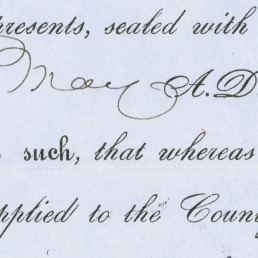 presents, sealed with
May A.D
such, that whereas
pplied to the Coun